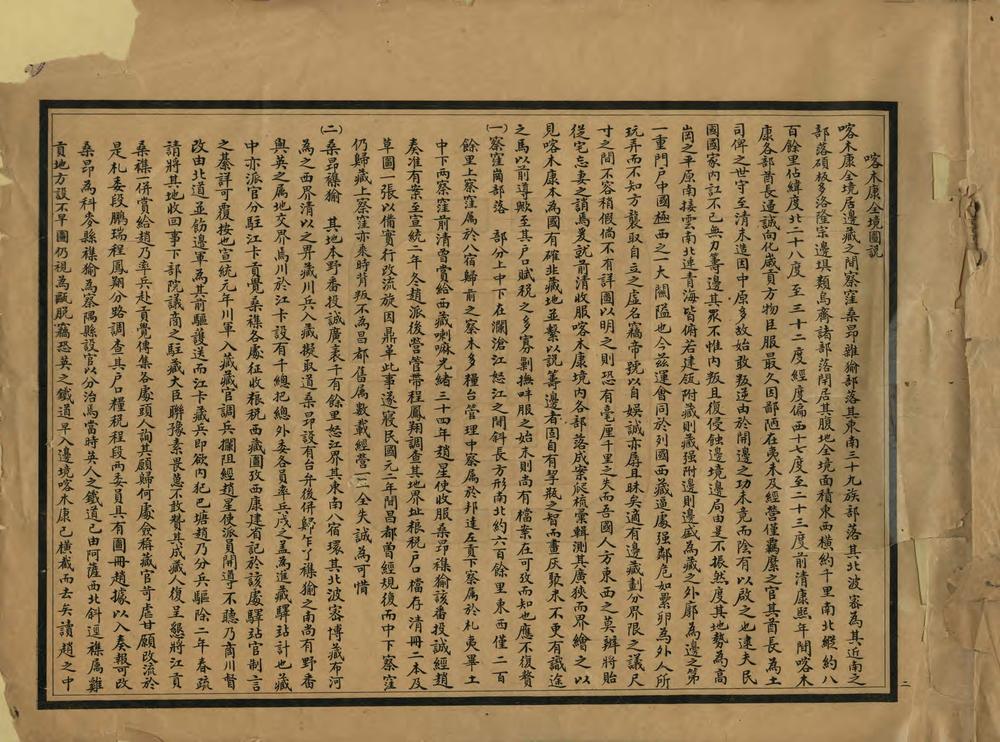 喀木康全境圖說
喀木康全境居邊藏之間察窪桑昂雜貐部落其東南三十九族部落其北波密為其近南之
部落碩板多洛隆宗邊垻類烏齊諸部落閒居其腹地全境面積東西橫約千里南北縱約八
百餘里佔緯度北二十八度至三十二度經度偏西十七度至二十三度前清康熙年間喀木
康各部酋長造誠向化歲貢方物臣服最久因鄙陋在夷未及經營僅羈縻之官其酋長為土
司俾之世守至清末造因中原多故始敢叛逆由於開邊之功未竟而陰有以啟之也逮夫民
國國家內訌不已無力籌邊其眾不惟內叛且復侵蝕邊境邊局由是不振然度其地勢為高
崗之平原南接雲南北連青海皆俯若建瓴附藏則藏强附邊則邊盛為藏之外廓為邊之第
一重門戶中國極西之一大關隘也今茲運會同於列國西藏道處强鄰危如纍卵為外人所
玩弄而不知方襲取自立之虛名竊帝號以自娛誠亦孱且昧矣適有邊藏劃分界限之議尺
寸之間不容稍假倘不有詳圖以明之則恐有毫厘千里之失而吾國人方東西之莫辨將貽
從宅忘妻之誚焉爰就前清收服喀木康境內各部落成案爬梳彙輯測其廣狹而界繪之以
見喀木康本為國有確非藏地並繫以說籌邊者固自有挈瓶之智而畫灰聚米不更有識途
之馬以前導歟至其戶口賦稅之多寡剿撫畔服之始末則尚有檔案在可攷而知也應不復贅
㈠察窪崗部落 部分上中下在瀾滄江怒江之間斜長方形南北約六百餘里東西僅二百
餘里上察窪屬於八宿歸前之察木多糧台管理中察屬於邦達左貢下察屬於札夷畢土
中下兩察窪前清曾賞給西藏喇嘛光緒三十四年趙星使收服桑昂襍貐該番投誠經趙
奏准有案至宣統二年令趙派後營管帶程鳳翔調查其地界址粮稅戶口檔存清冊二本及
草圖一張以備實行改流旋因鼎革此事遂寢民國元二年間昌都曾經規復而中下察窪
仍歸藏上察窪亦乘時背叛不為昌都舊属數載經營一一全失誠為可惜
㈡桑昂襍貐 其地本野番投誠廣袤千有餘里怒江界其東南八宿環其北波密博藏布河
為之西界清以之界藏川兵入藏擬取道桑昂設有台弁後併歸乍丫襍貐之南尚有野番
與英之属地交界焉川於江卡設有千總把總外委各員率兵戍之蓋為進藏驛站計也藏
中亦派官分駐江卡貢覺桑襍各處征收粮稅西藏圖攷西康建省記於該處驛站官制言
之綦詳可覆按也宣統元年川軍入藏藏官調兵攔阻經趙星使派員開導不聽乃商川督
改由北道並飭邊軍為其前驅護送而江卡藏兵即欲內犯巴塘趙乃分兵驅除二年春疏
請將其地收回事下部院議商之駐藏大臣聯豫素畏葸不敢贊其成藏人復呈懇將江貢
桑襍一併賞給趙乃率兵赴貢覺傳集各處頭人詢其願歸何處僉稱藏官苛虐甘願改流於
是札委段鵬瑞程鳳翔分路調查其戶口糧稅程段兩委員具有圖冊趙據以入奏報可改
桑昂為科麥縣襍貐為察隅縣設官以分治焉當時英人之鐵道已由阿薩西北斜逕襍属雜
貢地方設不早圖仍視為甌脫竊恐英之鐵道早入邊境喀木康已橫截而去矣讀趙之中
二